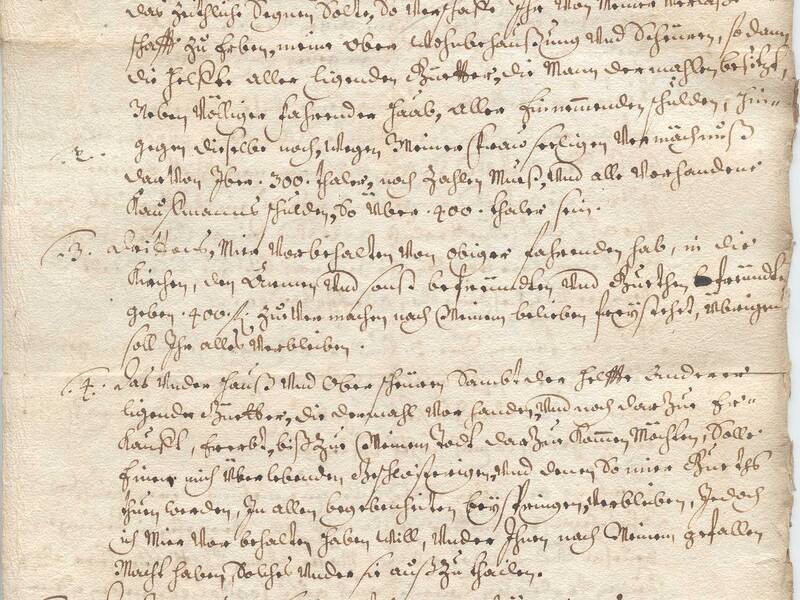 das Zeithliche Segnen Solte, So Verschaffe Ihr Von Meiner Verlass
schafft zu Erben, meine Ober Wohnbehaußung Und Scheuren, so dann
die Helffte aller ligenden Güetter, die Mann dermahlen besitzt,
Neben Völliger fahrender Haab, aller Einnemmenden schulden, Hin-
.2. gegen dieselbe noch, wegen Meiner Frau seeligen Vermächnuß
darvon Iber .300. thaler, noch Zahlen Mueß, Und alle Verhandene
Kauffmanns schulden, So Über .400. thaler sein.
.3. drittens, Mier Vorbehalten Von obiger fahrenden hab, in die
Kirchen, den Armen Und sonst befreundten Und Guethen befreundte
geben .400 f. zue Vermachen nach Meinem belieben freystehet, Übrigen
soll Ihr alles Verbleiben.
.4. Das Under Hauß Und Ober scheüren Sambt der helffte Anderer
ligender Güetter, die dermahl Vorhanden, Und noch darzue Er-
Kaufft, Ererbt, biß zue Meinem Todt darzue Kommen Möchten, Solle
Einen mich Überlebenden Geschwisterigen, Und denen So mier Gueths
thuen werden, In allen begebenheiten beyspringen, Verbleiben, Jedoch
ich Mier Vorbehalten haben will, Under Ihnen nach Meinem gefallen
Macht haben, Solches Under sie auß Zu thailen.